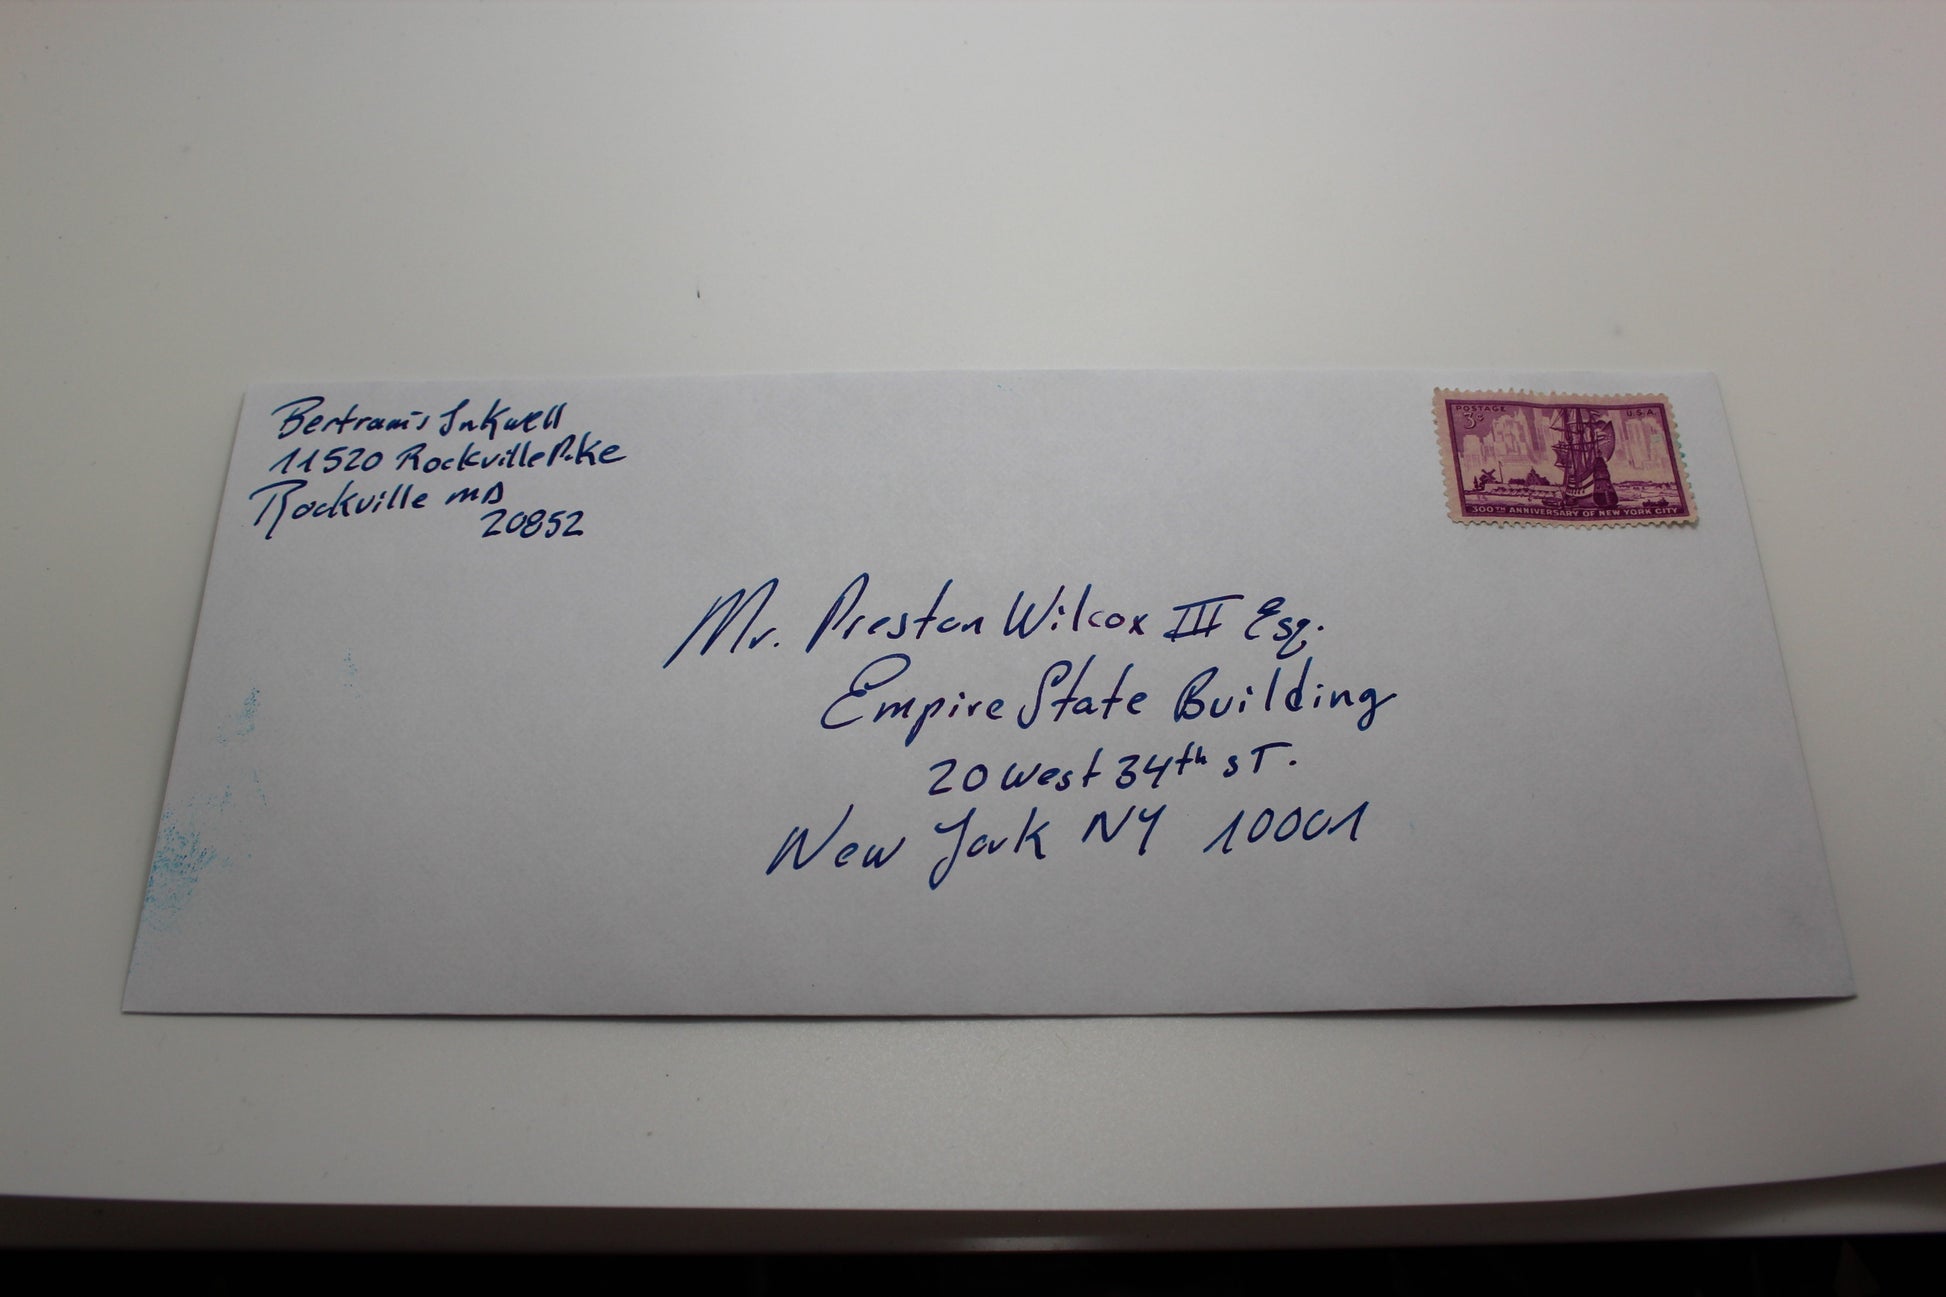 Bertram's Inkwell
11520 Rockville Pike
Rockville MD
20852
POSTAGE
3¢
U.S.A.
300TH ANNIVERSARY OF NEW YORK CITY
Mr. Preston Wilcox III Esq.
Empire State Building
20 West 34th ST.
New York NY 10001